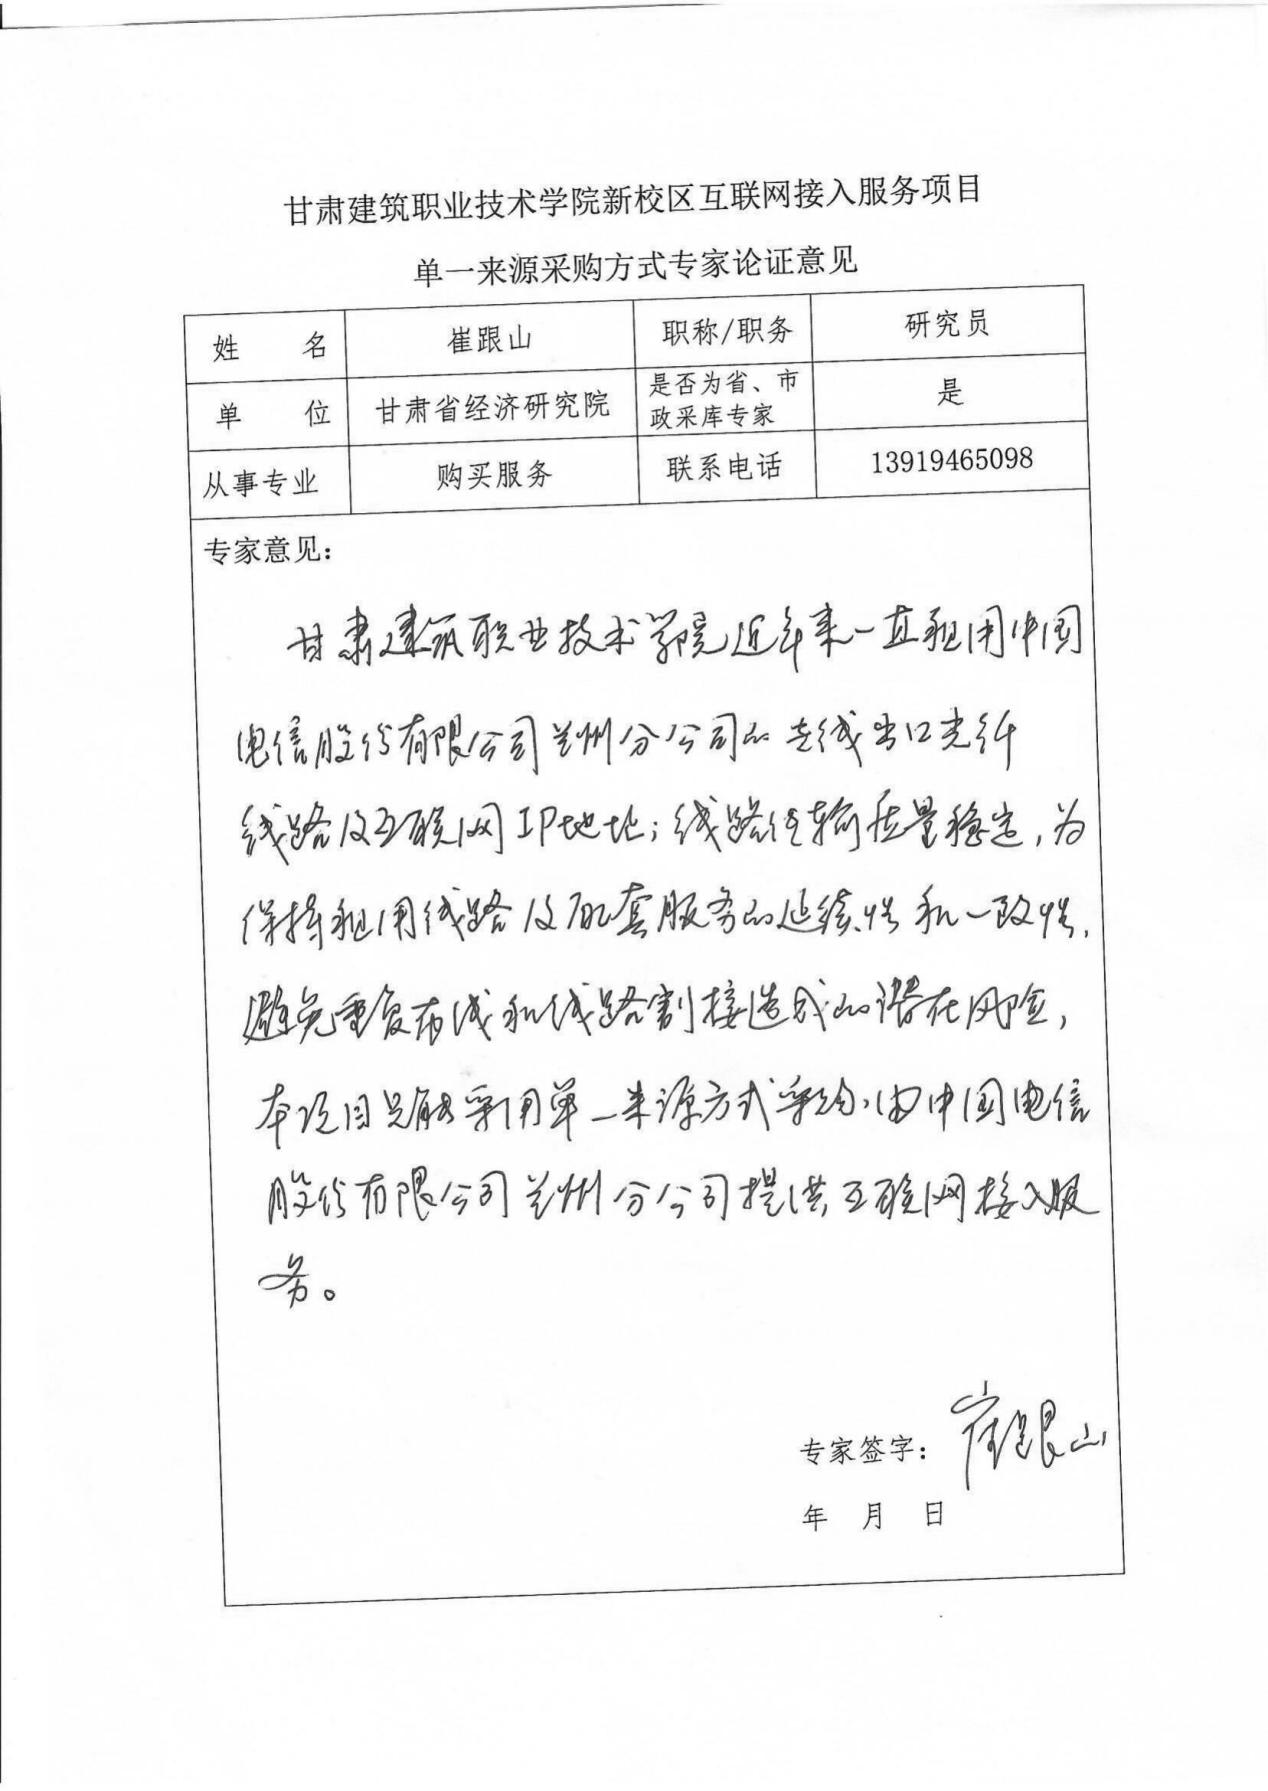 甘肃建筑职业技术学院新校区互联网接入服务项目
单一来源采购方式专家论证意见
姓 名 崔跟山 职称/职务 研究员
单 位 甘肃省经济研究院 是否为省、市政采库专家 是
从事专业 购买服务 联系电话 13919465098
专家意见：
甘肃建筑职业技术学院近年来一直租用中国
电信股份有限公司兰州分公司的在线出口光纤
线路及互联网IP地址；线路传输质量稳定，为
保持租用线路及配套服务的延续性和一致性，
避免重复布线和线路割接造成的潜在风险，
本项目只能采用单一来源方式采购，由中国电信
股份有限公司兰州分公司提供互联网接入服
务。
专家签字：崔跟山
年 月 日